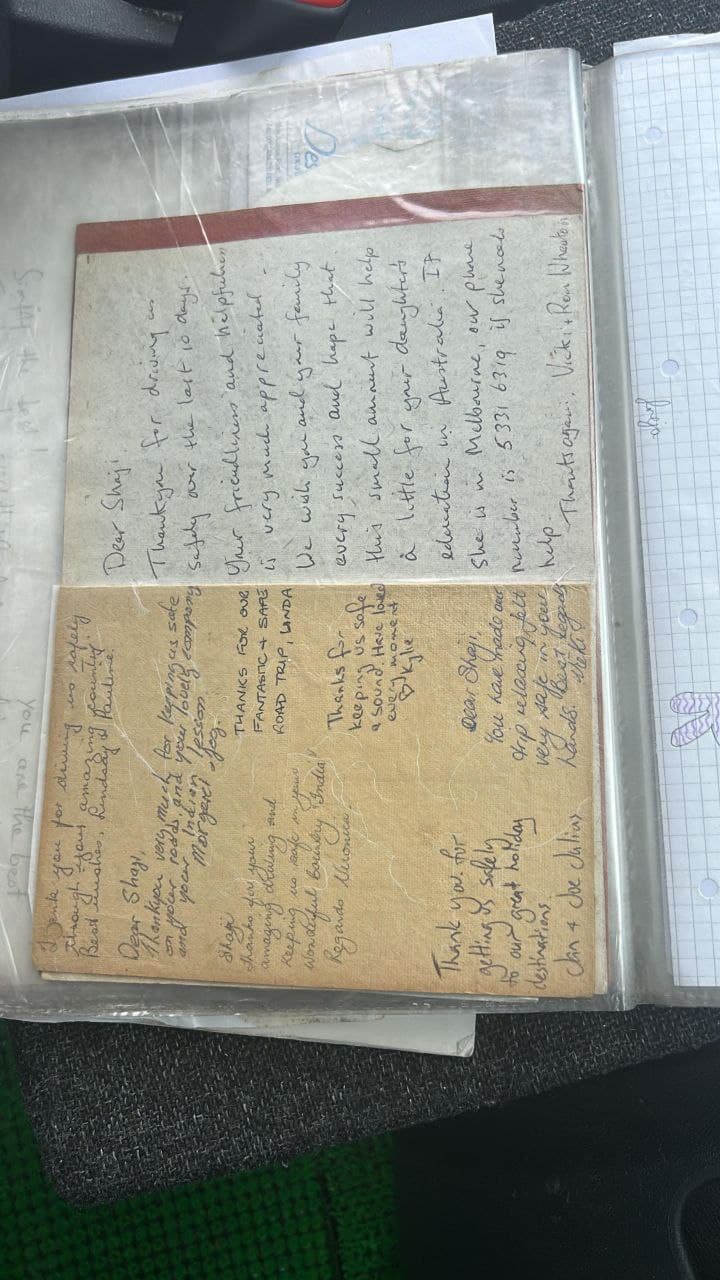 Thank you for driving us safely
through your amazing country.
Best wishes, Lindsay & Pauline.
Dear Shaji,
Thankyou very much for keeping us safe
on your roads, and your lovely company
and your Indian lesson
Margaret & Joy.
Shaji
thanks for your
amazing driving and
keeping us safe in your
wonderful country "India"
Regards Veronica.
THANKS FOR OUR
FANTASTIC + SAFE
ROAD TRIP, LINDA
Thanks for
keeping us safe
& sound. Have loved
every moment
Kylie
Thank you for
getting us safely
to our great holiday
destinations
Jan + Joe Julius
Dear Shaji,
You have made our
trip relaxing, felt
very safe in your
hands. Best Regards
Dear Shaji
Thankyou for driving us
safely over the last 10 days.
Your friendliness and helpfulness
is very much appreciated -
We wish you and your family
every success and hope that
this small amount will help
a little for your daughter's
education in Australia. If
she is in Melbourne, our phone
number is 5331 6319 if she needs
help.
Thanks again. Vicki + Ron Wheaton
Des
you are the best